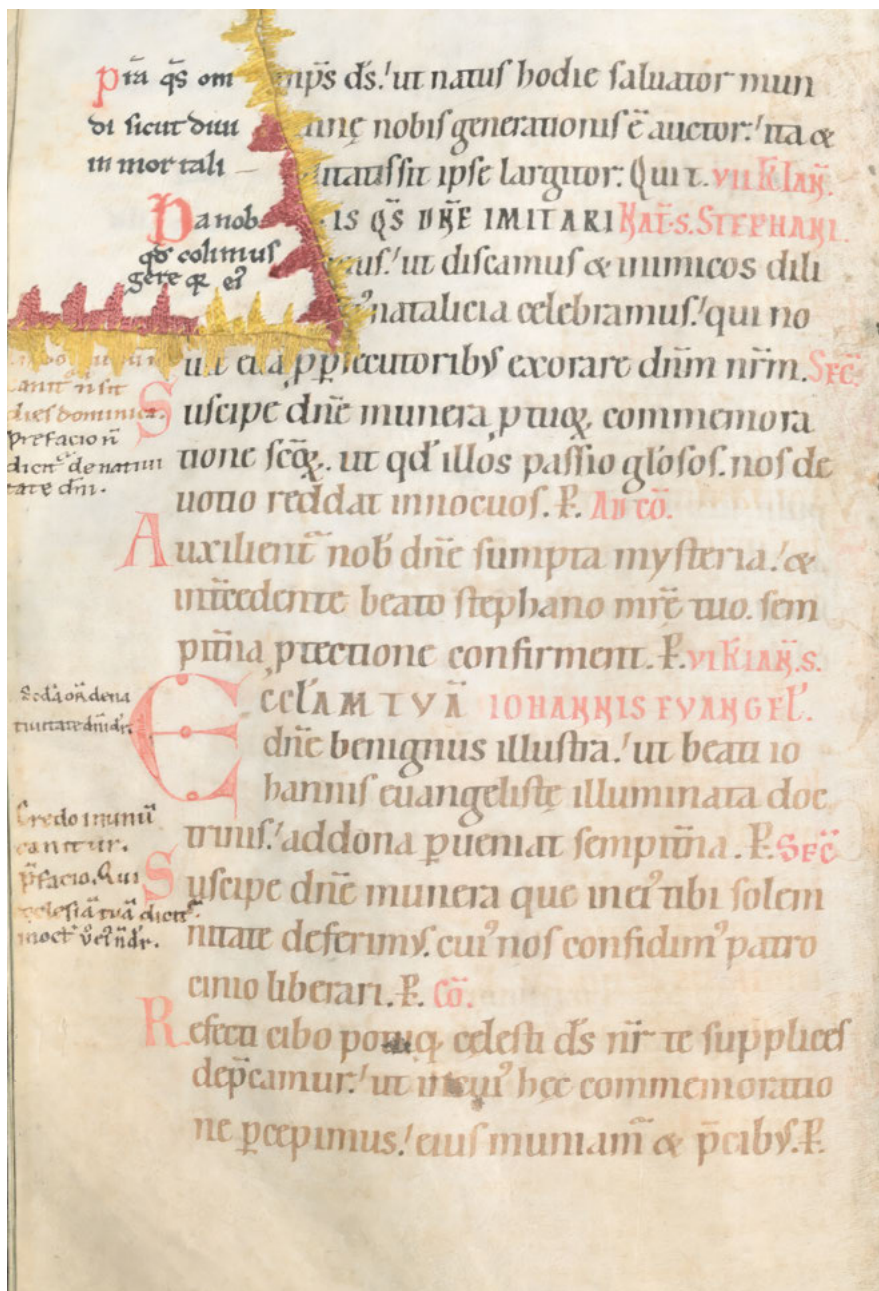 p̄ia q̄s om nip̄s d̄s. ut natus hodie saluator mun
di sicut diui nę nobis generationis ē auctor. ita &
inmortali tatis sit ipse largitor. Qui t. VII K IAN̄.
Da nob IS Q̄S DN̄E IMITARI NAT̄. S. STEPHANI.
qd̄ colimus ut discamus & inimicos dili
gere q̄ ei' natalicia celebramus. qui no
uit &iā p̄ p̄secutoribȝ exorare dn̄m nr̄m. SEC̄
Suscipe dn̄e munera p̄ tuoꝝ commemora
tione sc̄oꝝ. ut qd' illos passio gl'osos. nos de
uotio reddat innocuos. P̄. AD CŌ.
Auxilient̄ nob' dn̄e sumpta mysteria. &
int̄cedente beato stephano mr̄e tuo. sem
pit̄na p̄tectione confirment. P̄. VI K IAN̄. S.
ECCL'AM TVĀ IOHANNIS EVANGEL'.
dn̄e benignus illustra. ut beati io
hannis euangelistę illuminata doc
trinis. ad dona p̄ueniat sempit̄na. P̄. SEC̄
Suscipe dn̄e munera que in ei' tibi solem
nitate deferimȝ. cui' nos confidim' patro
cinio liberari. P̄. CŌ.
Refecti cibo potuq; cęlesti d̄s nr̄ te supplices
dep̄camur. ut in cui' hęc commemoratio
ne p̄cepimus. eius muniam̄ & p̄cibȝ. P̄.
canit̄ n sit
dies dominica.
Prefacio n̄
dicit̄ de natiui
tate dn̄i.
Credo in unū
canitur.
p̄facio. Qui
ęclesiā tuā